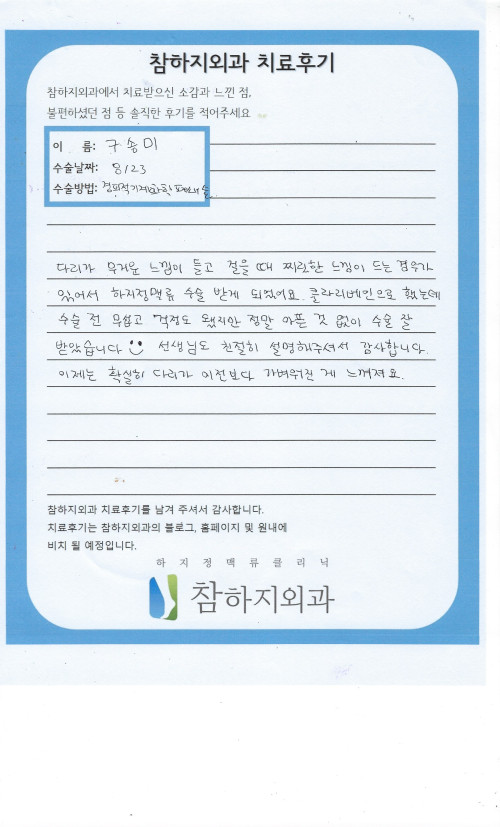 참하지외과 치료후기
참하지외과에서 치료받으신 소감과 느낀 점,
불편하셨던 점 등 솔직한 후기를 적어주세요
이 름: 구송미
수술날짜: 8/23
수술방법: 경피적기계화학
다리가 무거운 느낌이 들고 걸을 때 찌릿한 느낌이 드는 경우가
있어서 하지정맥류 수술 받게 되었어요. 클라리베인으로 했는데
수술 전 무섭고 걱정도 됐지만 정말 아픈 것 없이 수술 잘
받았습니다 선생님도 친절히 설명해주셔서 감사합니다.
이제는 확실히 다리가 이전보다 가벼워진 게 느껴져요.
참하지외과 치료후기를 남겨 주셔서 감사합니다.
치료후기는 참하지외과의 블로그, 홈페이지 및 원내에
비치 될 예정입니다.
하지정맥류클리닉
참하지외과